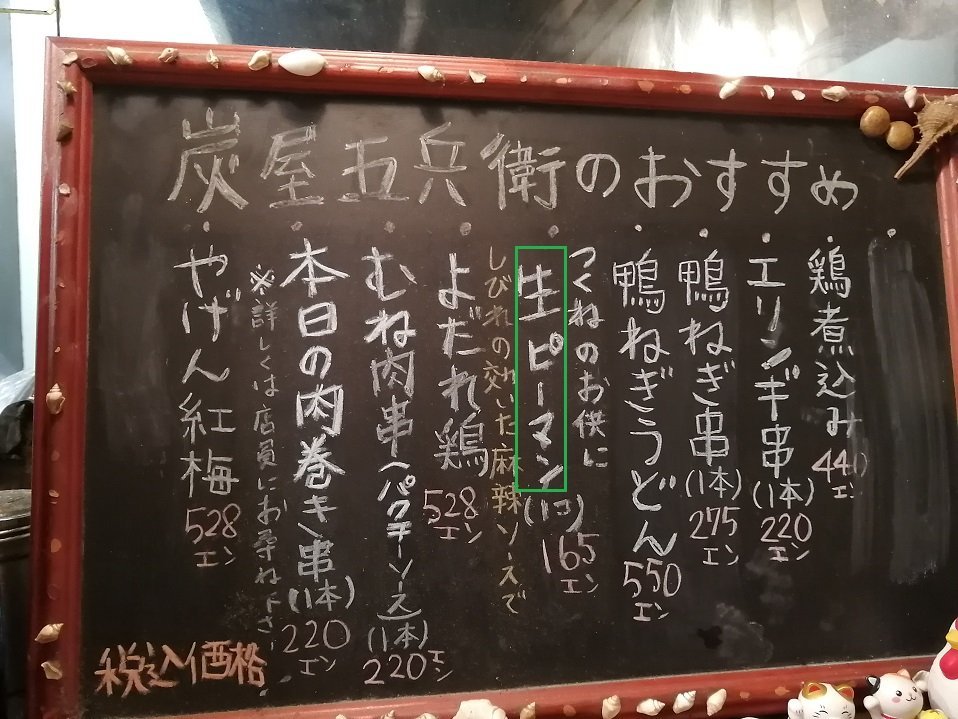 炭屋五兵衛のおすすめ
鶏煮込み 440エン
エリンギ串(1本)220エン
鴨ねぎ串(1本)275エン
鴨ねぎうどん 550エン
つくねのお供に
生ピーマン(1コ)165エン
しびれの効いた麻辣ソースで
よだれ鶏 528エン
むね肉串(パクチーソース)(1本)220エン
本日の肉巻き串(1本)220エン
※詳しくは店員にお尋ね下さい
やげん紅梅 528エン
税込価格